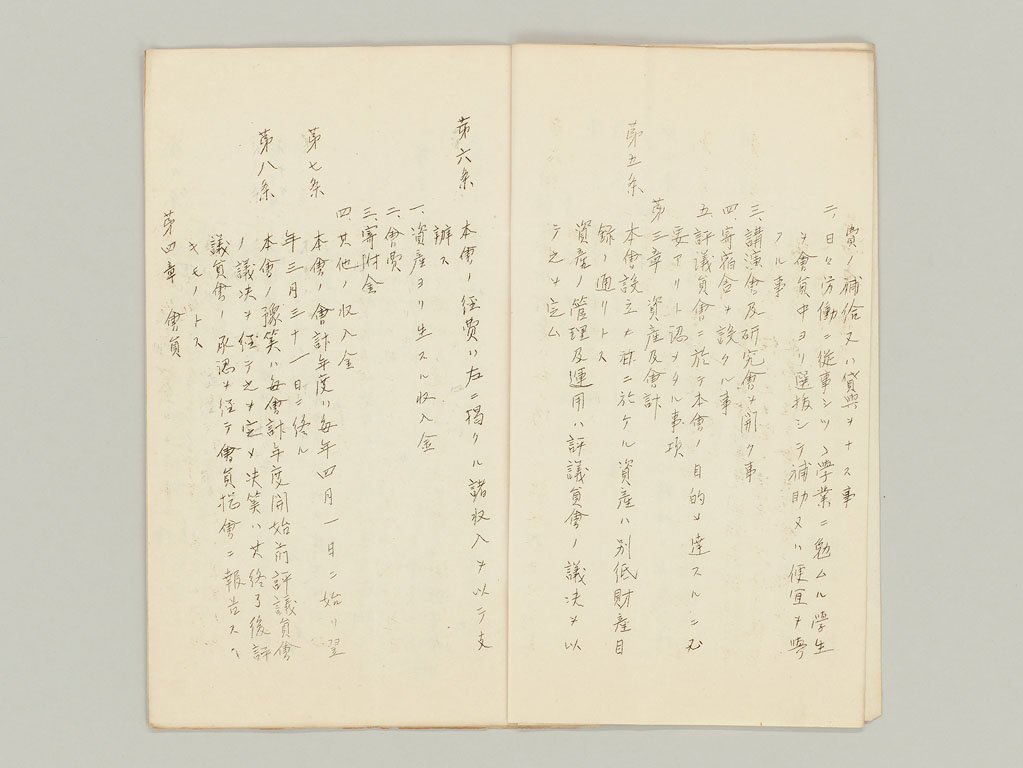 費ノ補給又ハ貸與ヲナス事
二、日々労働ニ従事シツヽ学業ニ勉ムル学生
ヲ會員中ヨリ選抜シテ補助又ハ便宜ヲ與
フル事
三、講演會及研究會ヲ開ク事
四、寄宿舎ヲ設クル事
五、評議員會ニ於テ本會ノ目的ヲ達スルニ必
要アリト認メタル事項
第三章 資産及會計
第五条 本會設立ノ時ニ於ケル資産ハ別紙財産目
録ノ通リトス
資産ノ管理及運用ハ評議員會ノ議決ヲ以
テ之ヲ定ム
第六条 本會ノ経費ハ左ニ掲クル諸収入ヲ以テ支
辨ス
一、資産ヨリ生スル収入金
二、會費
三、寄附金
四、其他ノ収入金
第七条 本會ノ會計年度ハ毎年四月一日ニ始リ翌
年三月三十一日ニ終ル
第八条 本會ノ豫算ハ毎會計年度開始前評議員會
ノ議決ヲ経テ之ヲ定メ決算ハ其終了後評
議員會ノ承認ヲ経テ會員総會ニ報告スヘ
キモノトス
第四章 會員